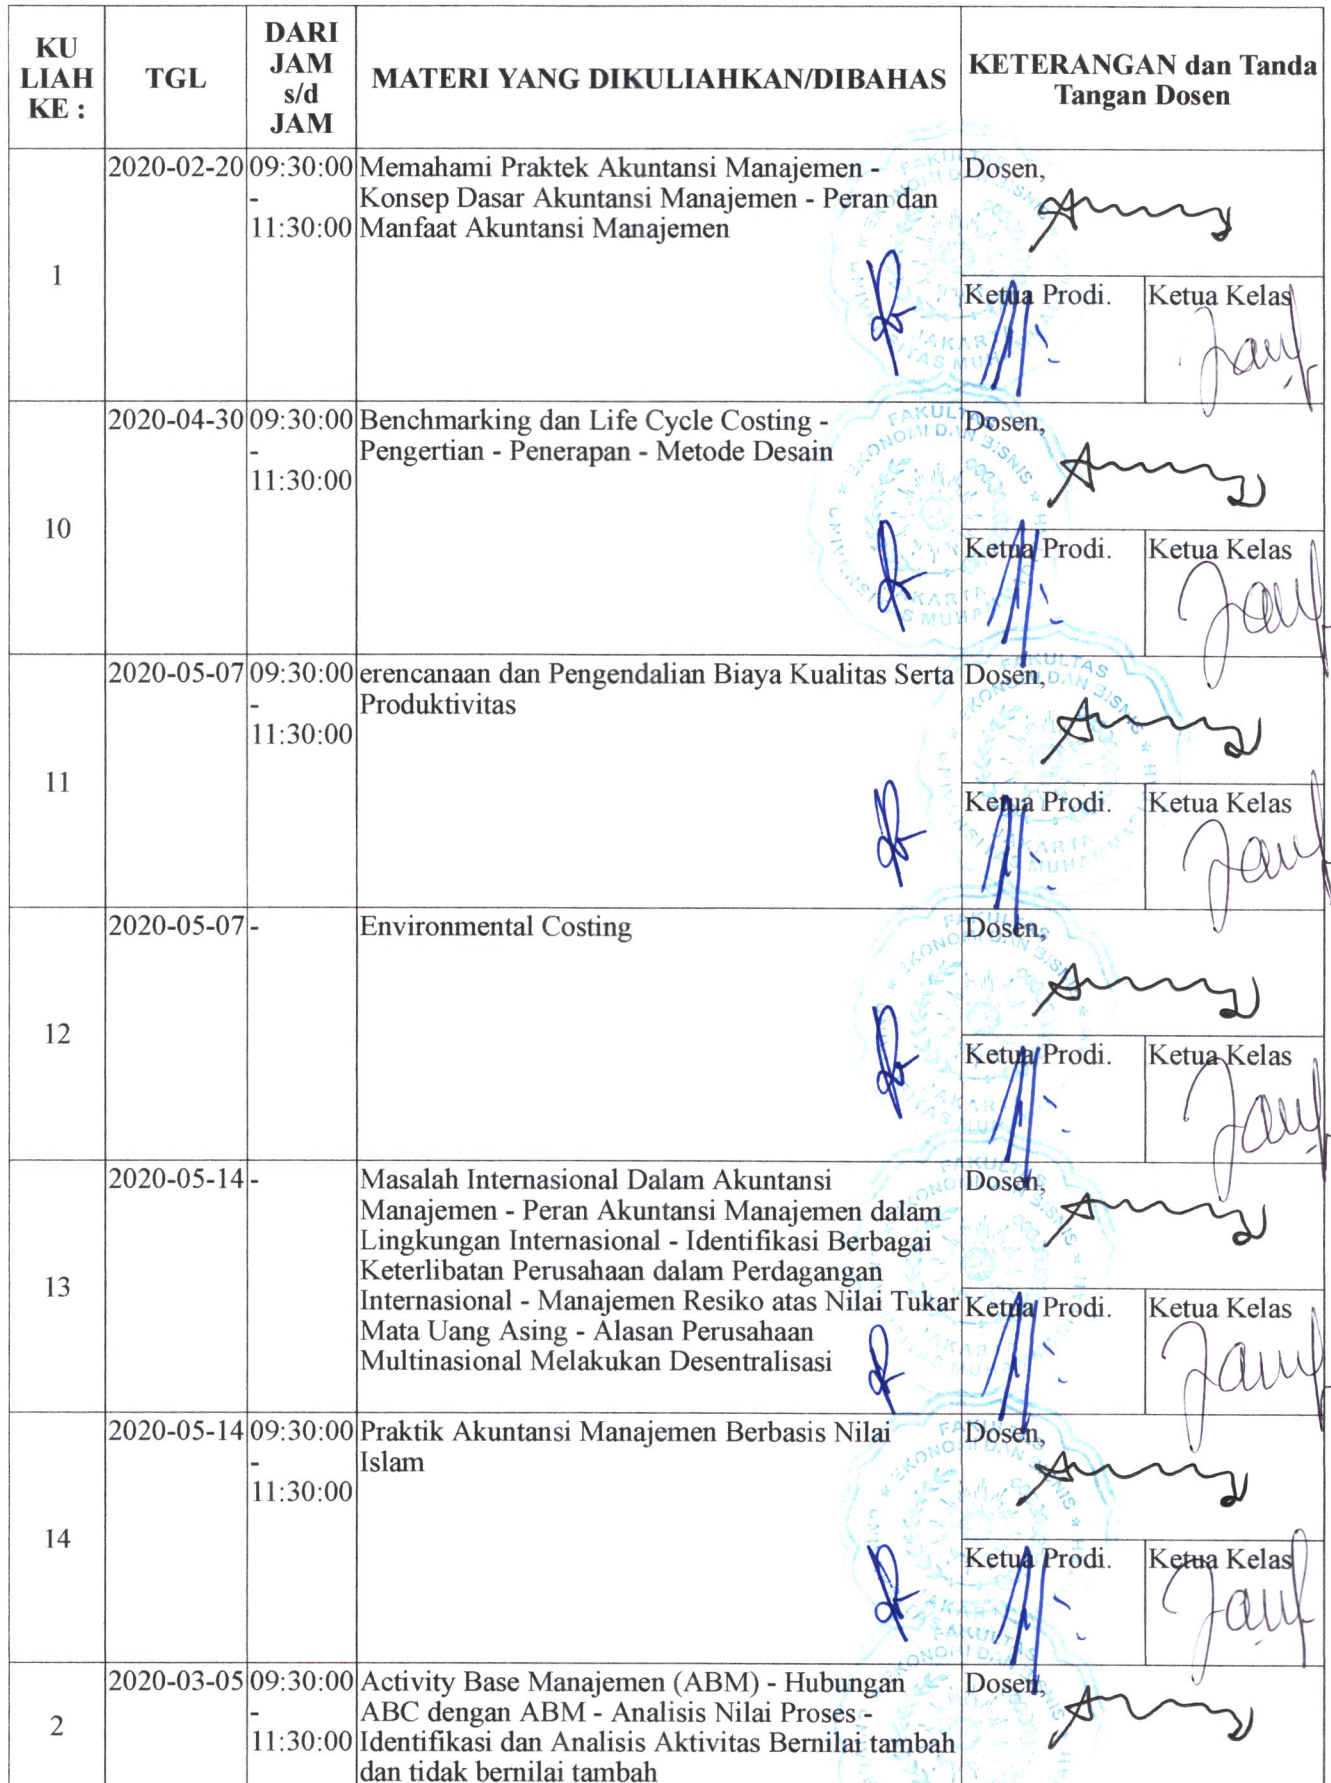 KU
LIAH
KE :
TGL
DARI
JAM
s/d
JAM
MATERI YANG DIKULIAHKAN/DIBAHAS
KETERANGAN dan Tanda
Tangan Dosen
1
2020-02-20
09:30:00
-
11:30:00
Memahami Praktek Akuntansi Manajemen -
Konsep Dasar Akuntansi Manajemen - Peran dan
Manfaat Akuntansi Manajemen
Dosen,
Ketua Prodi.
Ketua Kelas
10
2020-04-30
09:30:00
-
11:30:00
Benchmarking dan Life Cycle Costing -
Pengertian - Penerapan - Metode Desain
Dosen,
Ketua Prodi.
Ketua Kelas
11
2020-05-07
09:30:00
-
11:30:00
erencanaan dan Pengendalian Biaya Kualitas Serta
Produktivitas
Dosen,
Ketua Prodi.
Ketua Kelas
12
2020-05-07
-
Environmental Costing
Dosen,
Ketua Prodi.
Ketua Kelas
13
2020-05-14
-
Masalah Internasional Dalam Akuntansi
Manajemen - Peran Akuntansi Manajemen dalam
Lingkungan Internasional - Identifikasi Berbagai
Keterlibatan Perusahaan dalam Perdagangan
Internasional - Manajemen Resiko atas Nilai Tukar
Mata Uang Asing - Alasan Perusahaan
Multinasional Melakukan Desentralisasi
Dosen,
Ketua Prodi.
Ketua Kelas
14
2020-05-14
09:30:00
-
11:30:00
Praktik Akuntansi Manajemen Berbasis Nilai
Islam
Dosen,
Ketua Prodi.
Ketua Kelas
2
2020-03-05
09:30:00
-
11:30:00
Activity Base Manajemen (ABM) - Hubungan
ABC dengan ABM - Analisis Nilai Proses -
Identifikasi dan Analisis Aktivitas Bernilai tambah
dan tidak bernilai tambah
Dosen,